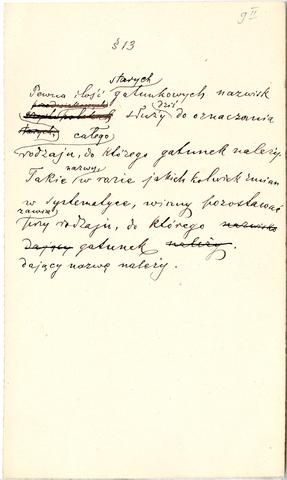 9 II
§ 13
starych
Pewna ilość gatunkowych nazwisk
dziś
służy do oznaczania
starych, całego
rodzaju, do którego gatunek należy.
nazwy
Takie w razie jakichkolwiek zmian
w systematyce, winny pozostawać
zawsze
przy rodzaju, do którego nazwisko
dający gatunek należy.
dający nazwę należy.